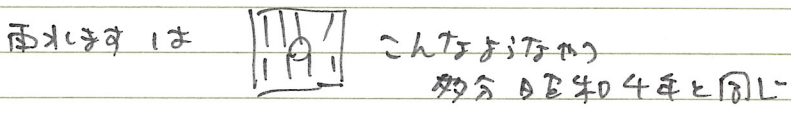 雨水ますは こんなようなやつ
多分 昭和4年と同じ